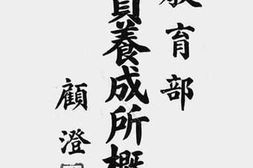 教育部
員養成所概
顧澄